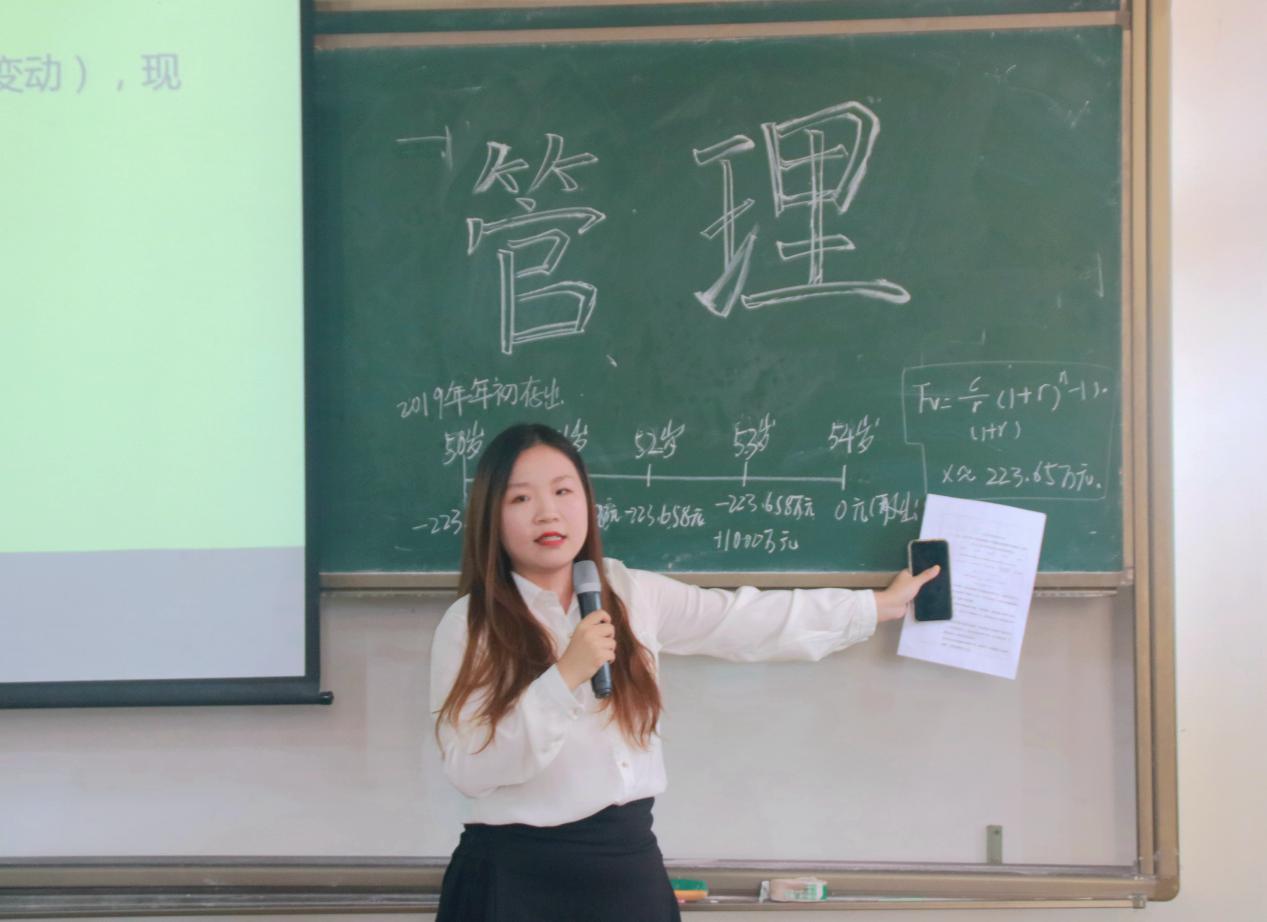 变动），现
管理
2019年年初存出
50岁 岁 52岁 53岁 54岁
-223 元 -223.658元 -223.658万元 0元(再出
+1000万元
Fv= c/r (1+r)^n-1).
(1+r)
x≈ 223.65万元.